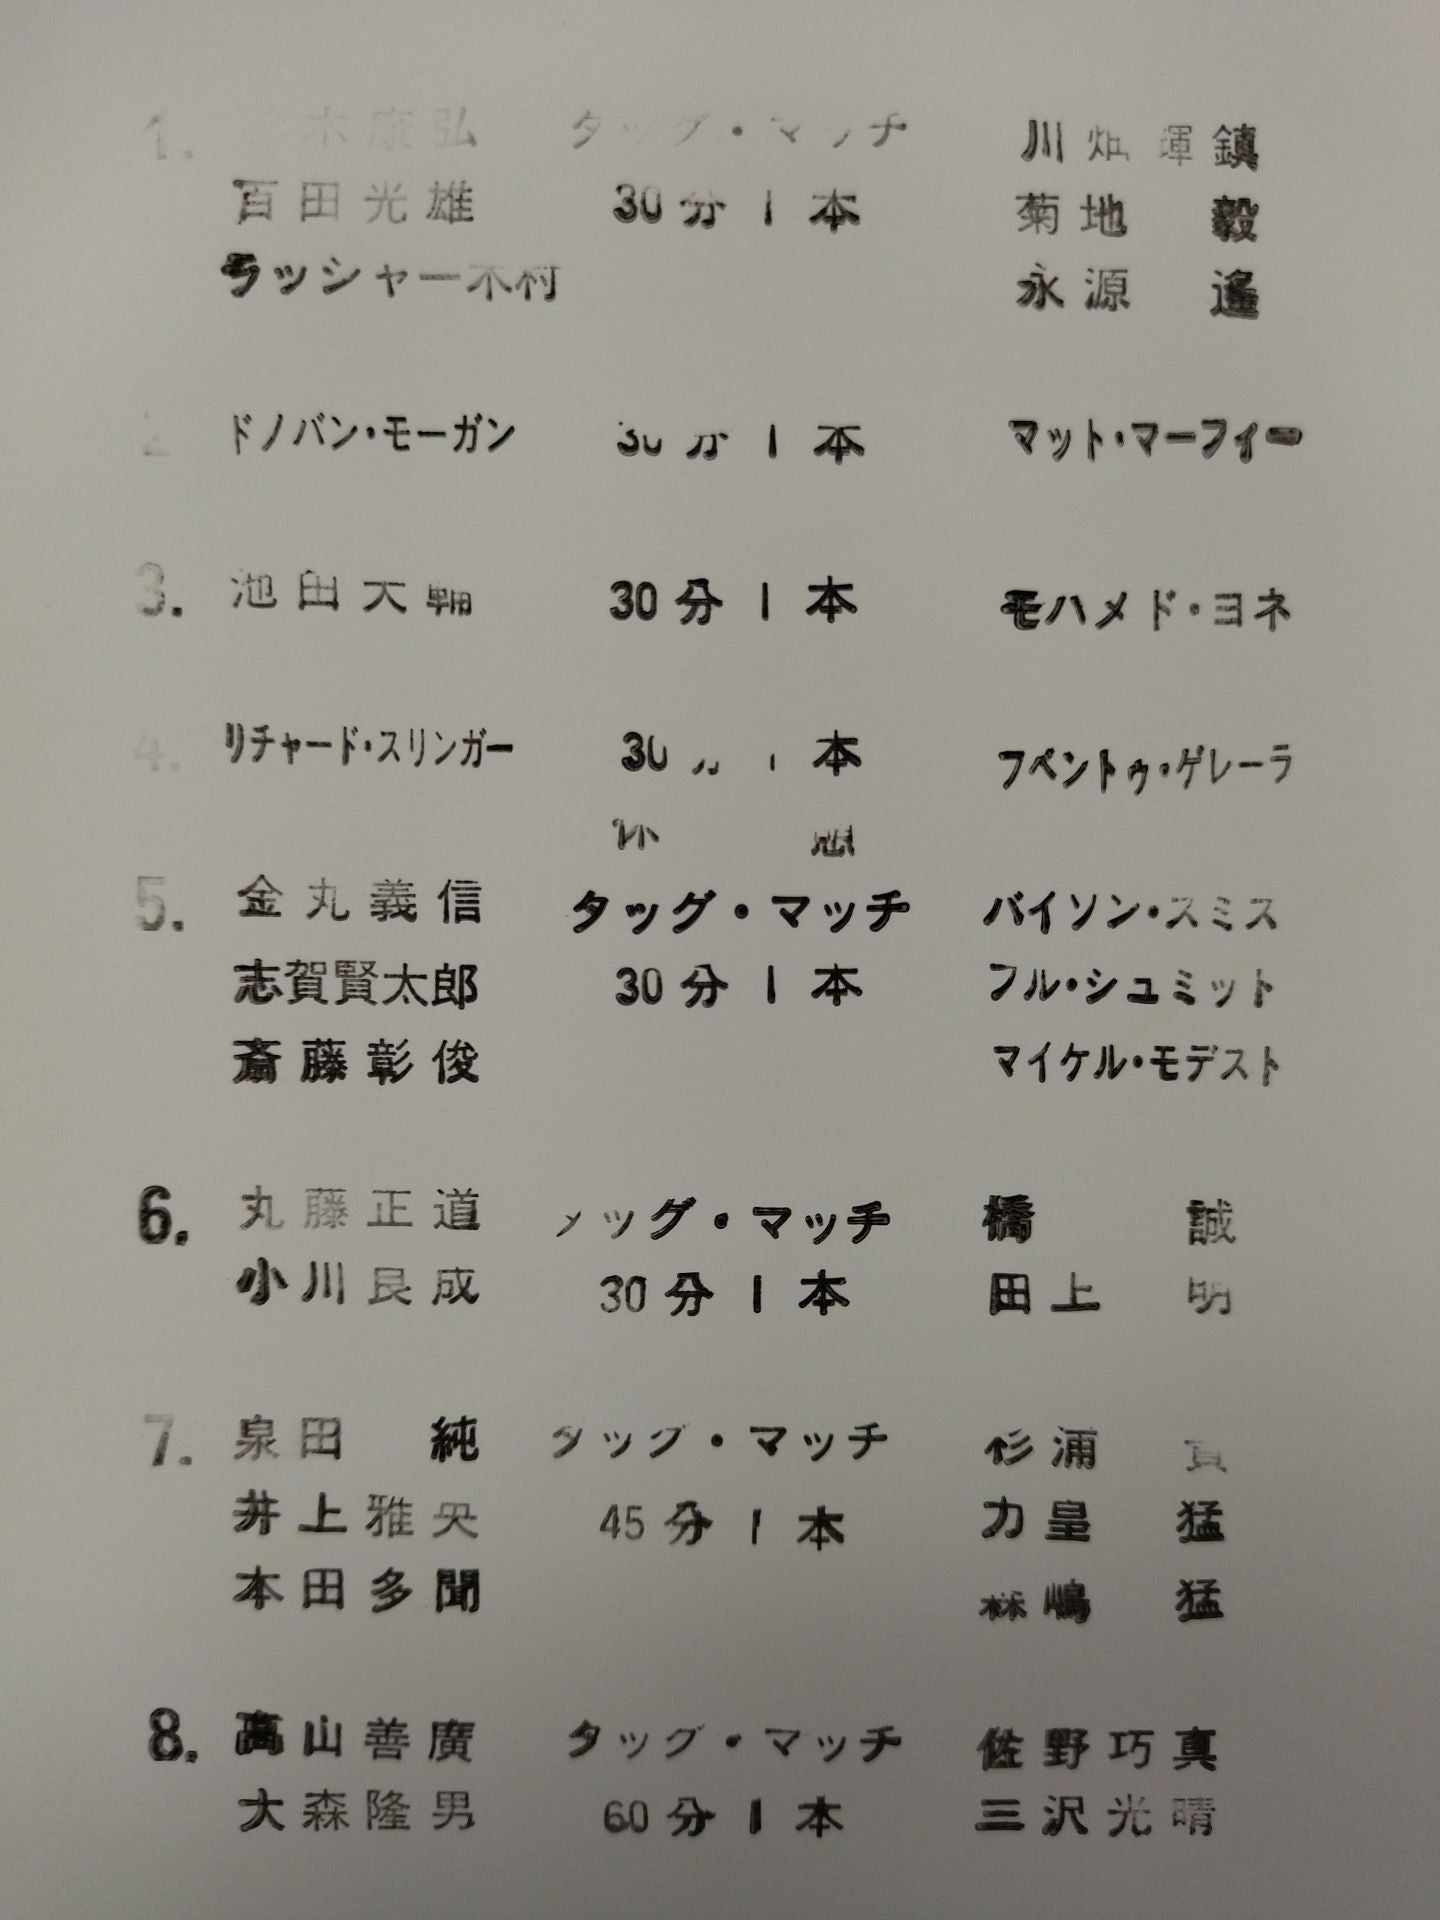 1. 鈴木康弘 タッグ・マッチ 川畑輝鎮
百田光雄 30分1本 菊地毅
ラッシャー木村 永源遙
2 ドノバン・モーガン 30分1本 マット・マーフィー
3. 池田大輔 30分1本 モハメド・ヨネ
4. リチャード・スリンガー 30分1本 フベントゥ・ゲレーラ
休憩
5. 金丸義信 タッグ・マッチ バイソン・スミス
志賀賢太郎 30分1本 フル・シュミット
斎藤彰俊 マイケル・モデスト
6. 丸藤正道 タッグ・マッチ 橋誠
小川良成 30分1本 田上明
7. 泉田純 タッグ・マッチ 杉浦貴
井上雅央 45分1本 力皇猛
本田多聞 森嶋猛
8. 高山善廣 タッグ・マッチ 佐野巧真
大森隆男 60分1本 三沢光晴